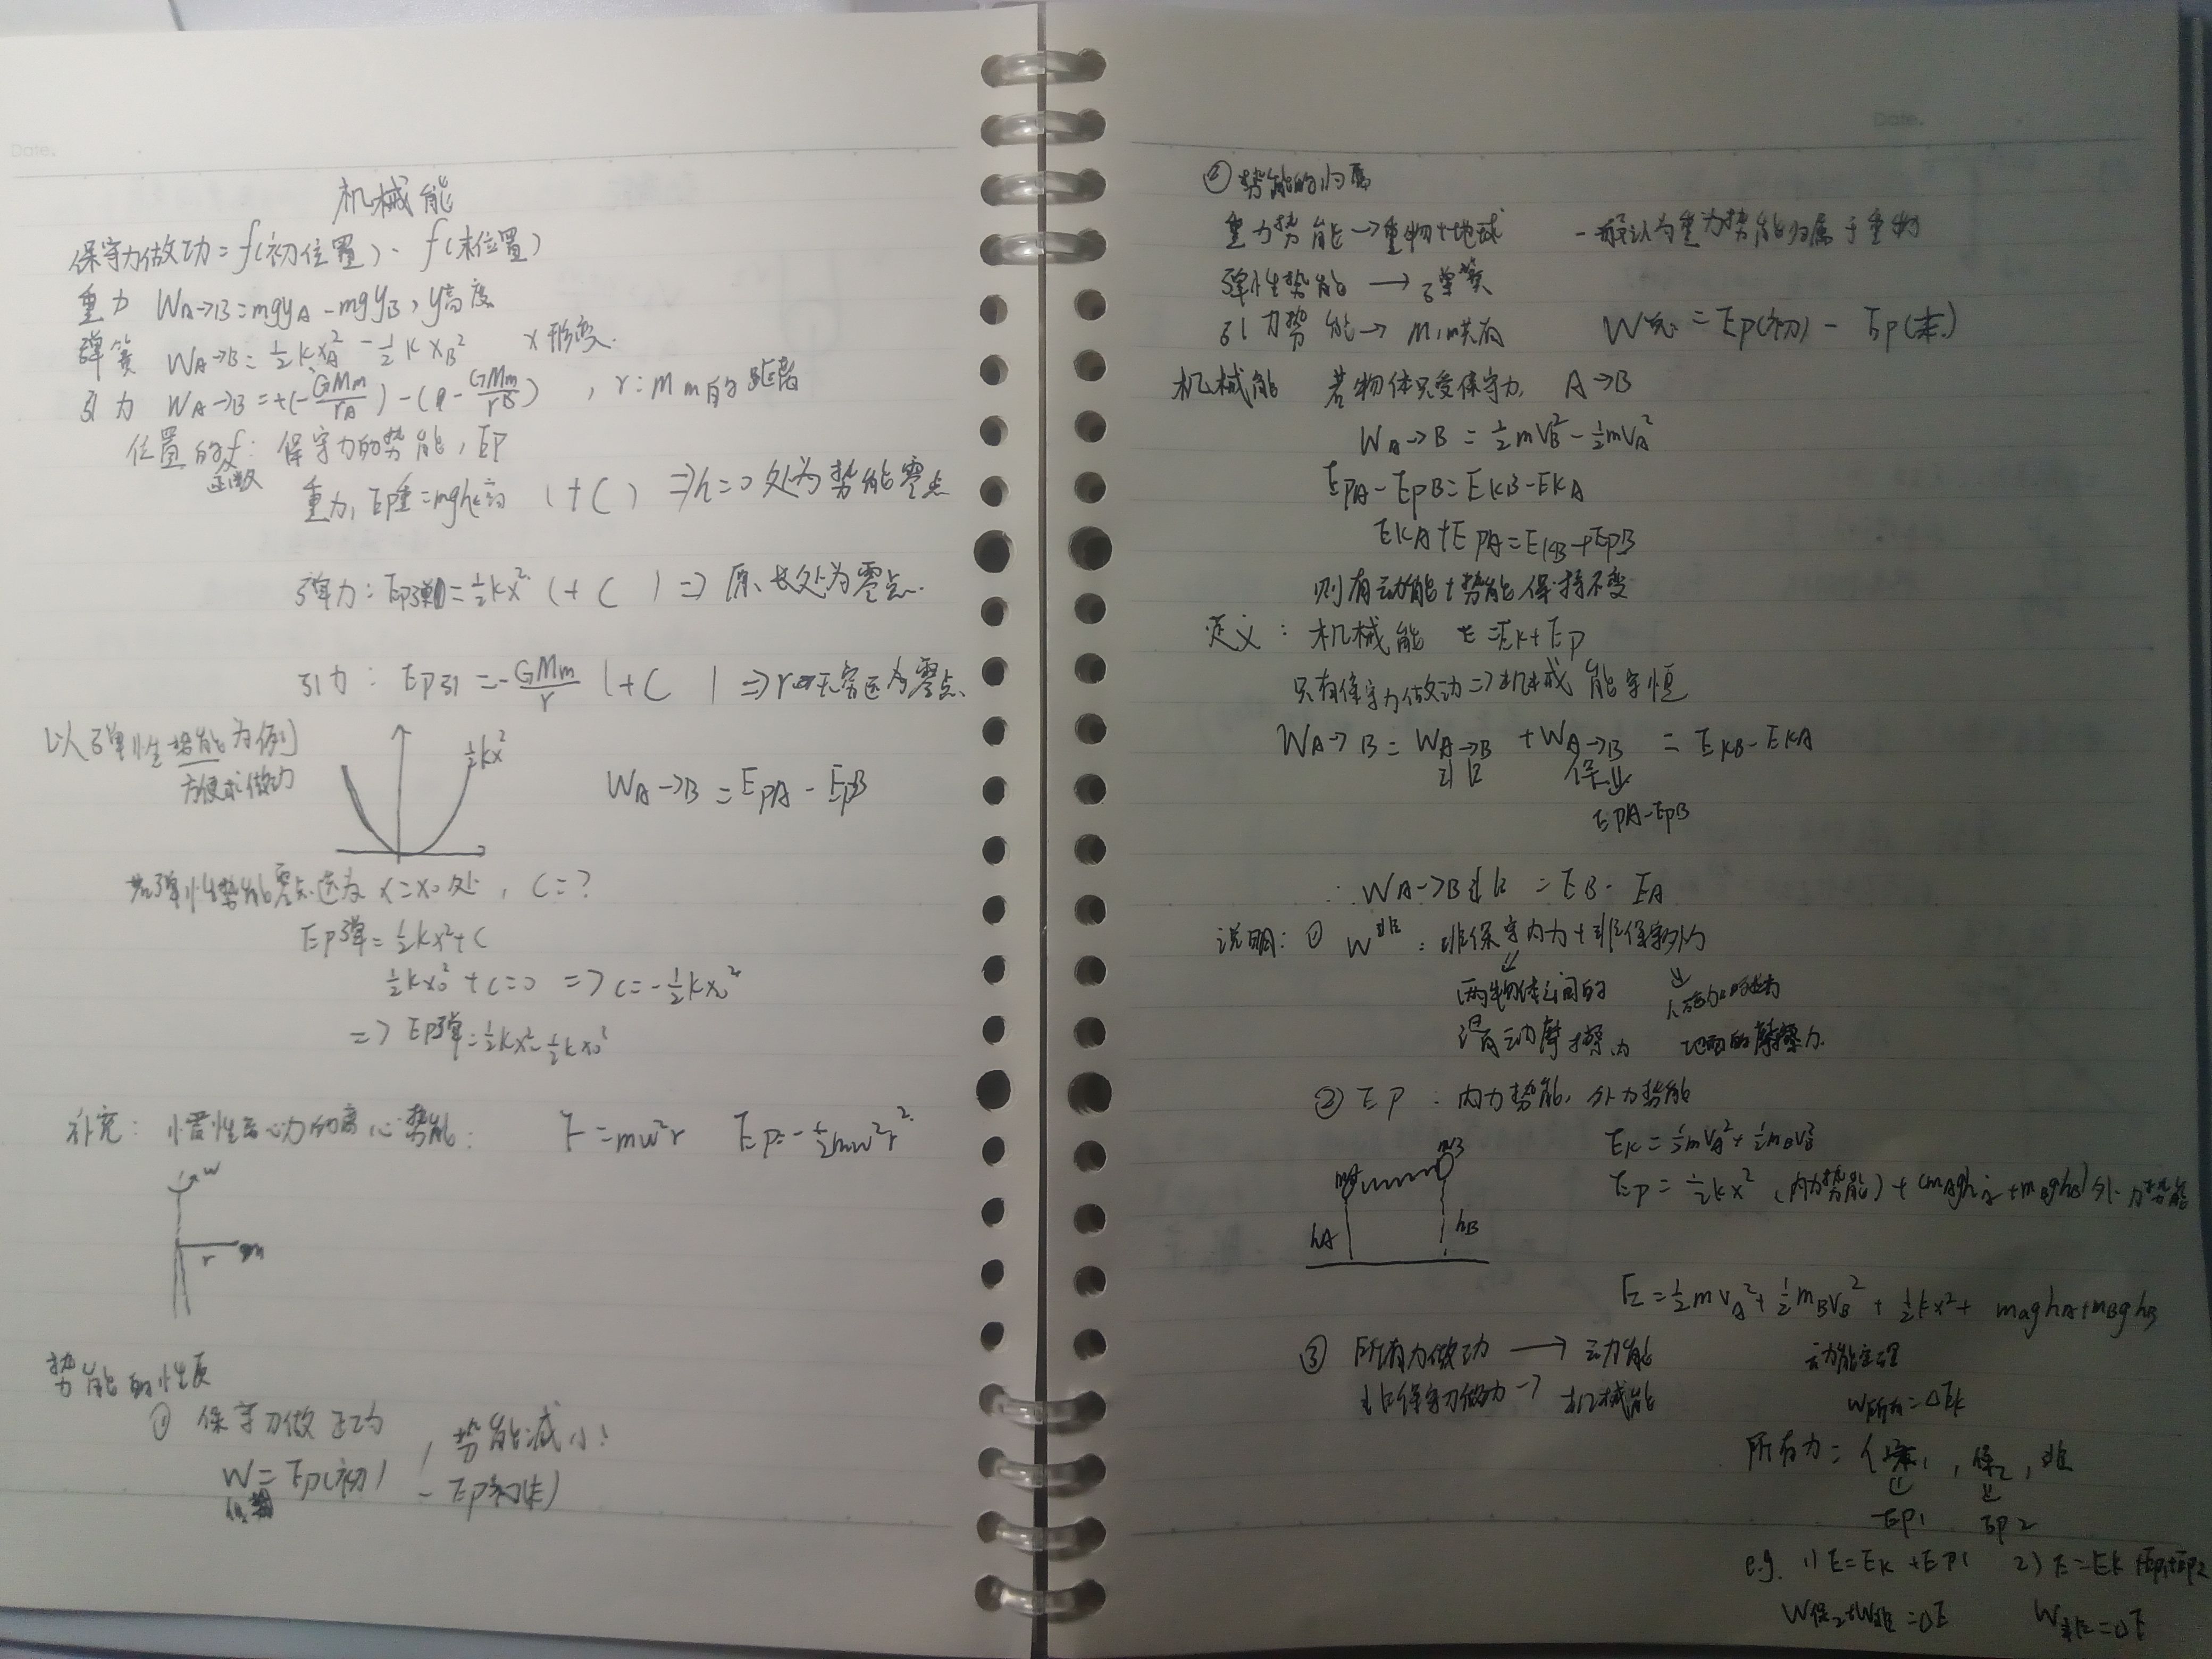 Date.
机械能
保守力做功=f(初位置)-f(末位置)
重力 WA→B=mgyA-mgyB,y高度
弹簧 WA→B=½kxA²-½kxB² x形变.
引力 WA→B=+(-GMm/rA)-(-GMm/rB),r:Mm间的距离
位置的f:保守力的势能,EP
函数
重力,EP重=mgh (+C)⇒h=0处为势能零点
弹力:EP弹=½kx²(+C)⇒原长处为零点.
引力:EP引=-GMm/r(+C)⇒r无穷远为零点.
以弹性势能为例
方便求做功
½kx²
WA→B=EPA-EPB
若弹性势能零点选为x=x0处,C=?
EP弹=½kx²+C
½kx0²+C=0⇒C=-½kx0²
⇒EP弹=½kx²-½kx0²
补充:惯性离心力的离心势能: F=mω²r EP=-½mω²r².
w
r m
势能的性质
① 保守力做正功,势能减小!
W=EP(初)-EP(末)
Date.
② 势能的归属
重力势能→重物+地球 一般认为重力势能归属于重物
弹性势能→弹簧
引力势能→M,m共有 W保=EP(初)-EP(末)
机械能 若物体只受保守力, A→B
WA→B=½mVB²-½mVA²
EPA-EPB=EKB-EKA
EKA+EPA=EKB+EPB
则有动能+势能保持不变
定义:机械能 E=EK+EP
只有保守力做功⇒机械能守恒
WA→B=WA→B+WA→B=EKB-EKA
非 保⇓
EPA-EPB
∴WA→B非=EB-EA
说明:① W非:非保守内力+非保守外力
⇓ ⇓
两物体之间的
滑动摩擦力 地面的摩擦力.
② EP:内力势能,外力势能
EK=½mVA²+½mBVB²
EP=½kx²(内力势能)+(mAghA+mBghB)外力势能
mA mB
hA hB
E=½mVA²+½mBVB²+½kx²+mAghA+mBghB
③ 所有力做功→动能 动能定理
非保守力做功→机械能 W所有=ΔEK
所有力={保1,保2,非
⇓ ⇓
EP1 EP2
e.g. 1)E=EK+EP1 2)E=EK+EP1+EP2
W保2+W非=ΔE W非=ΔE